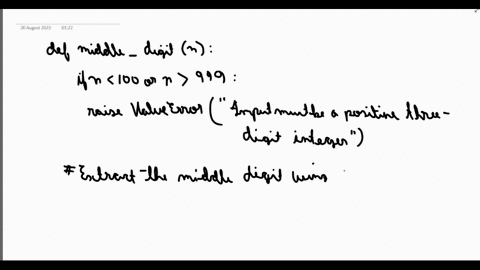 30 August 2023 03:22
def middle_digit (n):
if n < 100 or n > 999:
raise ValueError ("Input must be a positive three-
digit integer")
# Extract the middle digit using